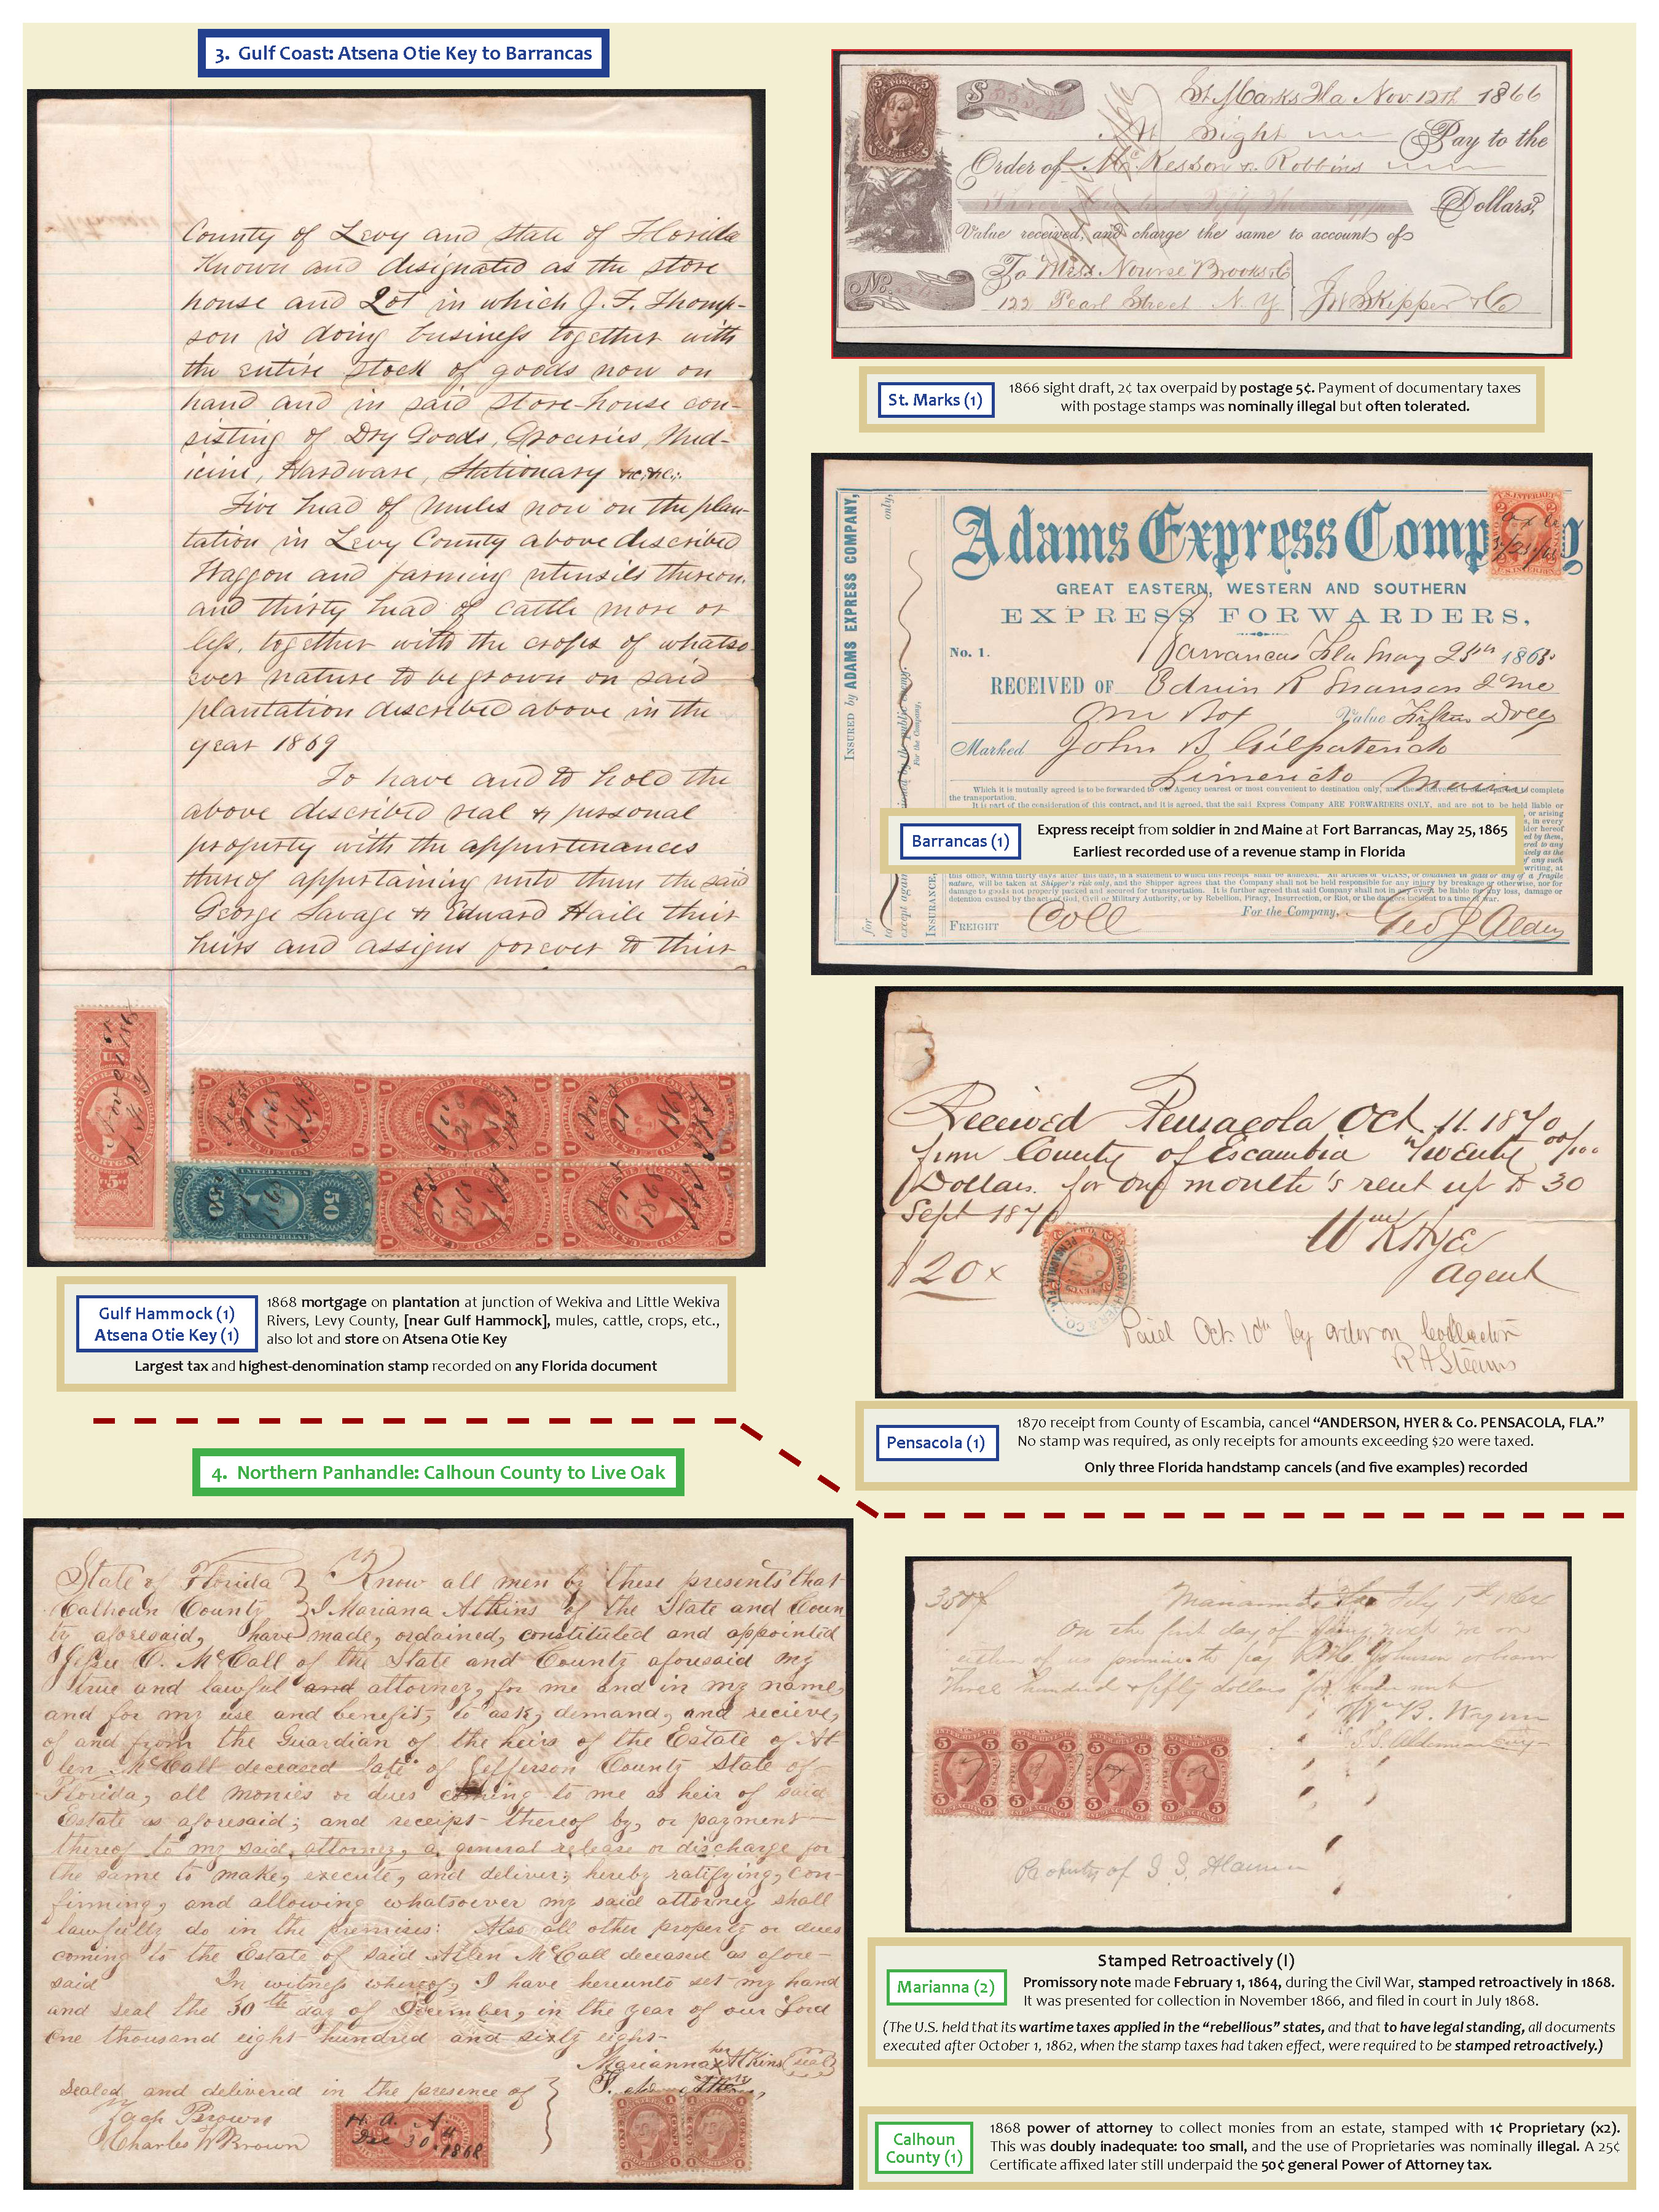 3. Gulf Coast: Atsena Otie Key to Barrancas
County of Levy and State of Florida
Known and designated as the store
house and Lot in which J. F. Thomp-
son is doing business together with
the entire stock of goods now on
hand and in said store-house con-
sisting of Dry Goods, Groceries, Med-
icine, Hardware, Stationary &c, &c;
Five head of mules now on the plan-
tation in Levy County above described
Waggon and farming utensils thereon.
and thirty head of cattle more or
less, together with the crops of whatso
ever nature to be grown on said
plantation described above in the
year 1869
To have and to hold the
above described real & personal
property with the appurtenances
thereof appertaining unto them the said
George Savage & Edward Haile their
heirs and assigns forever to their
Nov 21 1868
MORTGAGE
UNITED STATES
50 50
INTER. REVENUE
Gulf Hammock (1)
Atsena Otie Key (1)
1868 mortgage on plantation at junction of Wekiva and Little Wekiva
Rivers, Levy County, [near Gulf Hammock], mules, cattle, crops, etc.,
also lot and store on Atsena Otie Key
Largest tax and highest-denomination stamp recorded on any Florida document
St. Marks Fla Nov. 12th 1866
$
At Sight Pay to the
Order of McKesson & Robbins
Dollars,
Value received, and charge the same to account of
To Mess Nourse Brooks & Co
No. 122 Pearl Street N. Y J W Skipper & Co
St. Marks (1)
1866 sight draft, 2¢ tax overpaid by postage 5¢. Payment of documentary taxes
with postage stamps was nominally illegal but often tolerated.
INSURED by ADAMS EXPRESS COMPANY,
only,
for
INSURANCE,
For the Company,
Adams Express Company
GREAT EASTERN, WESTERN AND SOUTHERN
EXPRESS FORWARDERS,
No. 1.
Barrancas Fla May 25th 1865
RECEIVED OF Edwin R Swanson 2d Me
One Box Value Fifteen Dolls
Marked John B Gilpaterick
Limerick Maine
Which it is mutually agreed is to be forwarded to our Agency nearest or most convenient to destination only, and there delivered to other parties to complete
the transportation.
It is part of the consideration of this contract, and it is agreed, that the said Express Company ARE FORWARDERS ONLY, and are not to be held liable or
Barrancas (1)
Express receipt from soldier in 2nd Maine at Fort Barrancas, May 25, 1865
Earliest recorded use of a revenue stamp in Florida
nature, will be taken at Shipper's risk only, and the Shipper agrees that the Company shall not be held responsible for any injury by breakage or otherwise, nor for
damage to goods not properly packed and secured for transportation. It is further agreed that said Company shall not in any event be liable for any loss, damage or
detention caused by the acts of God, Civil or Military Authority, or by Rebellion, Piracy, Insurrection, or Riot, or the dangers incident to a time of war.
For the Company,
FREIGHT Coll Geo J Alden
Received Pensacola Oct. 11. 1870
from County of Escambia Twenty 00/100
Dollars. for one month's rent up to 30
Sept 1870
Wm K Hyer
$20x agent
Paid Oct 10th by order on Collector
R A Stearns
Pensacola (1)
1870 receipt from County of Escambia, cancel “ANDERSON, HYER & Co. PENSACOLA, FLA.”
No stamp was required, as only receipts for amounts exceeding $20 were taxed.
Only three Florida handstamp cancels (and five examples) recorded
4. Northern Panhandle: Calhoun County to Live Oak
State of Florida } Know all men by these presents that
Calhoun County } I Mariana Atkins of the State and Coun
ty aforesaid, have made, ordained, constituted and appointed
Jesse O. McCall of the State and County aforesaid my
true and lawful and attorney, for me and in my name,
and for my use and benefit, to ask, demand, and recieve,
of and from the Guardian of the heirs of the Estate of Al-
len McCall deceased late of Jefferson County State of
Florida, all monies or dues coming to me as heir of said
Estate as aforesaid; and receipt thereof by, or payment
thereof to my said attorney, a general release or discharge for
the same to make, execute, and deliver; hereby ratifying, con-
firming, and allowing whatsoever my said attorney shall
lawfully do in the premises: Also all other property or dues
coming to the Estate of said Allen McCall deceased as afore-
said In witness whereof, I have hereunto set my hand
and seal the 30th day of December, in the year of our Lord
One thousand eight hundred and sixty eight-
Marianna her x Atkins (seal)
Sealed and delivered in the presence of
Zach Brown
Charles W Brown
H. A. A.
Dec 30th 1868
350$ Marianna Fla Feby 1st 1864
On the first day of next we or
either of us promise to pay Johnson or bearer
Three hundred & fifty dollars for
Wm B. Wynn
Property of S S. Alaman
Stamped Retroactively (I)
Marianna (2)
Promissory note made February 1, 1864, during the Civil War, stamped retroactively in 1868.
It was presented for collection in November 1866, and filed in court in July 1868.
(The U.S. held that its wartime taxes applied in the “rebellious” states, and that to have legal standing, all documents
executed after October 1, 1862, when the stamp taxes had taken effect, were required to be stamped retroactively.)
Calhoun
County (1)
1868 power of attorney to collect monies from an estate, stamped with 1¢ Proprietary (x2).
This was doubly inadequate: too small, and the use of Proprietaries was nominally illegal. A 25¢
Certificate affixed later still underpaid the 50¢ general Power of Attorney tax.